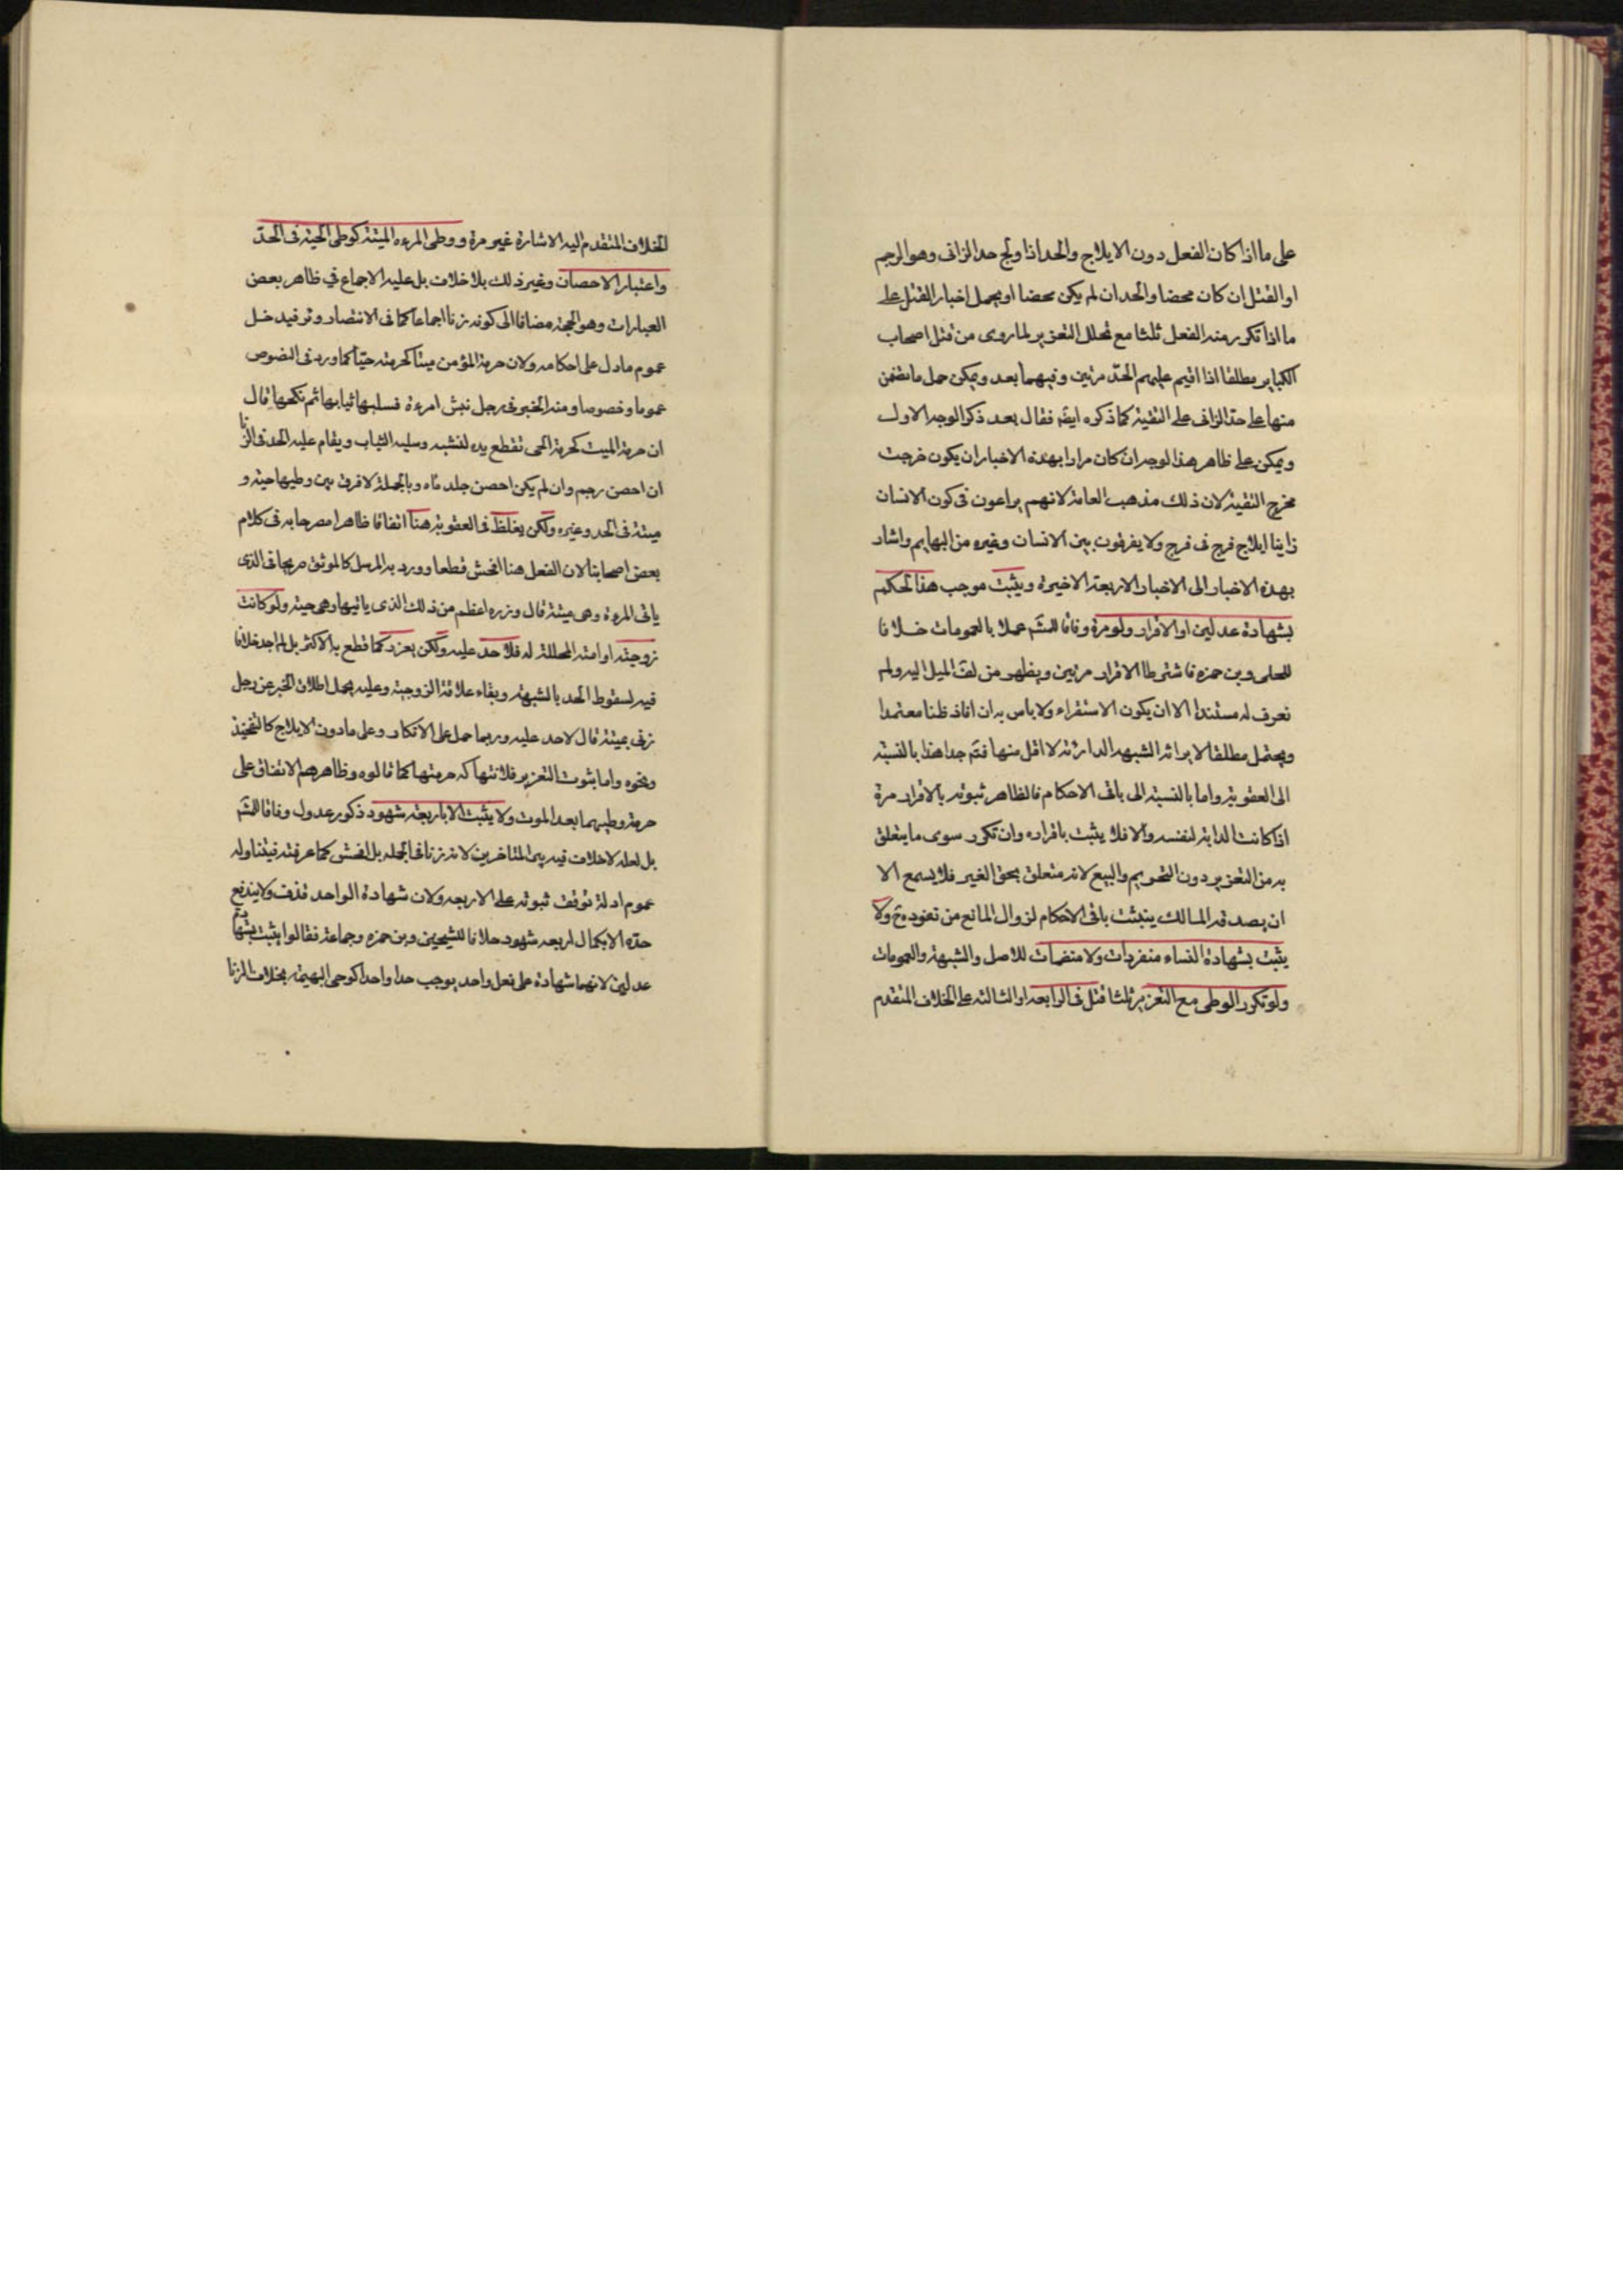 على ما اذا كان الفعل دون الايلاج والحد اذا اولج حد الزانى وهو الرجم
او القتل ان كان محصنا والحد ان لم يكن محصنا او يحمل اخبار القتل على
ما اذا تكرر منه الفعل ثلثا مع تخلل التعزير لما روى من قتل اصحاب
الكباير مطلقا اذا اقيم عليهم الحدّ مرتين وفيهما بعد ويمكن حمل ما تضمن
منها على حدّ الزانى على التقية كما ذكره ايضَ فقال بعد ذكر الوجه الاول
ويمكن على ظاهر هذا الوجه ان كان مرادا بهذه الاخبار ان يكون خرجت
مخرج التقية لان ذلك مذهب العامة لانهم يراعون فى كون الانسان
زانيا ايلاج فرج فى فرج ولا يفرقون بين الانسان وغيره من البهايم واشار
بهذه الاخبار الى الاخبار الاربعة الاخيرة ويثبت موجب هذا الحكم
بشهادة عدلين او الاقرار ولو مرة وفاقا للشَم عملا بالعمومات خلافا
للحلى وبن حمزه فاشترطا الاقرار مرتين ويظهر من لفَ الميل اليه ولم
نعرف له مستندا الا ان يكون الاستقراء ولا باس به ان افاد ظنا معتمدا
ويحتمل مطلقا لايراثه الشبهه الدارئة لا اقل منها فتمَ جدا هذا بالنسبة
الى العقوبة واما بالنسبة الى باقى الاحكام فالظاهر ثبوته بالاقرار مرة
اذا كانت الدابة لنفسه والا فلا يثبت باقراره وان تكرر سوى ما يتعلق
به من التعزير دون التحريم والبيع لانه متعلق بحق الغير فلا يسمع الا
ان يصدقه المالك يثبت باقى الاحكام لزوال المانع من نفوذه حَ ولا
يثبت بشهادة النساء منفردات ولا منضمات للاصل والشبهة والعمومات
ولو تكرر الوطى مع التعزير ثلثا قتل فى الرابعه او الثالثه على الخلاف المتقدم
الخلاف المتقدم اليه الاشارة غير مرة ووطى المرءه الميتة كوطى الحية فى الحدّ
واعتبار الاحصان وغير ذلك بلا خلاف بل عليه الاجماع في ظاهر بعض
العبارات وهو الحجة مضافا الى كونه زنا اجماعا كما فى الانتصار وثر فيدخل
عموم ما دل على احكامه ولان حرمة المؤمن ميتا كحرمته حيّا كما ورد فى النصوص
عموما وخصوصا ومنه الخبر فى رجل نبش امرءة فسلبها ثيابها ثم نكحها قال
ان حرمة الميت كحرمة الحى تقطع يده لنبشه وسلبه الثياب ويقام عليه الحد فى الزنا
ان احصن رجم وان لم يكن احصن جلد ماه وبالجملة لا فرق بين وطيها حية و
ميتة فى الحد وغيره ولكن يغلظ فى العقوبة هنا اتفاقا ظاهرا مصرحا به فى كلام
بعض اصحابنا لان الفعل هنا افحش قطعا وورد به المرسل كالموثق صريحا فى الذى
ياتى المرءة وهى ميتة قال وزره اعظم من ذلك الذى ياتيها وهى حية ولو كانت
زوجته او امته المحللة له فلا حد عليه ولكن يعزر كما قطع به الاكثر بل لم اجد خلافا
فيه لسقوط الحد بالشبهة وبقاء علاقة الزوجية وعليه يحمل اطلاق الخبر عن رجل
زنى بميتة قال لا حد عليه وربما حمل على الانكار وعلى ما دون الايلاج كالتفخيذ
ونحوه واما ثبوت التعزير فلانتهاكه حرمتها كما قالوه وظاهرهم الاتفاق على
حرمة وطيهما بعد الموت ولا يثبت الا باربعة شهود ذكور عدول وفاقا للشَم
بل لعله لا خلاف فيه بين المتاخرين لانه زنا فى الجمله بل افحش كما عرفته فيتناوله
عموم ادلة توقف ثبوته على الاربعه ولان شهادة الواحد قذف ولا يندفع
حدّه الا بكمال اربعه شهود خلافا للشيخين وبن حمزه وجماعة فقالوا يثبت بشهادة
عدلين لانهما شهادة على فعل واحد يوجب حدا واحدا كوطى البهيمه بخلاف الزنا